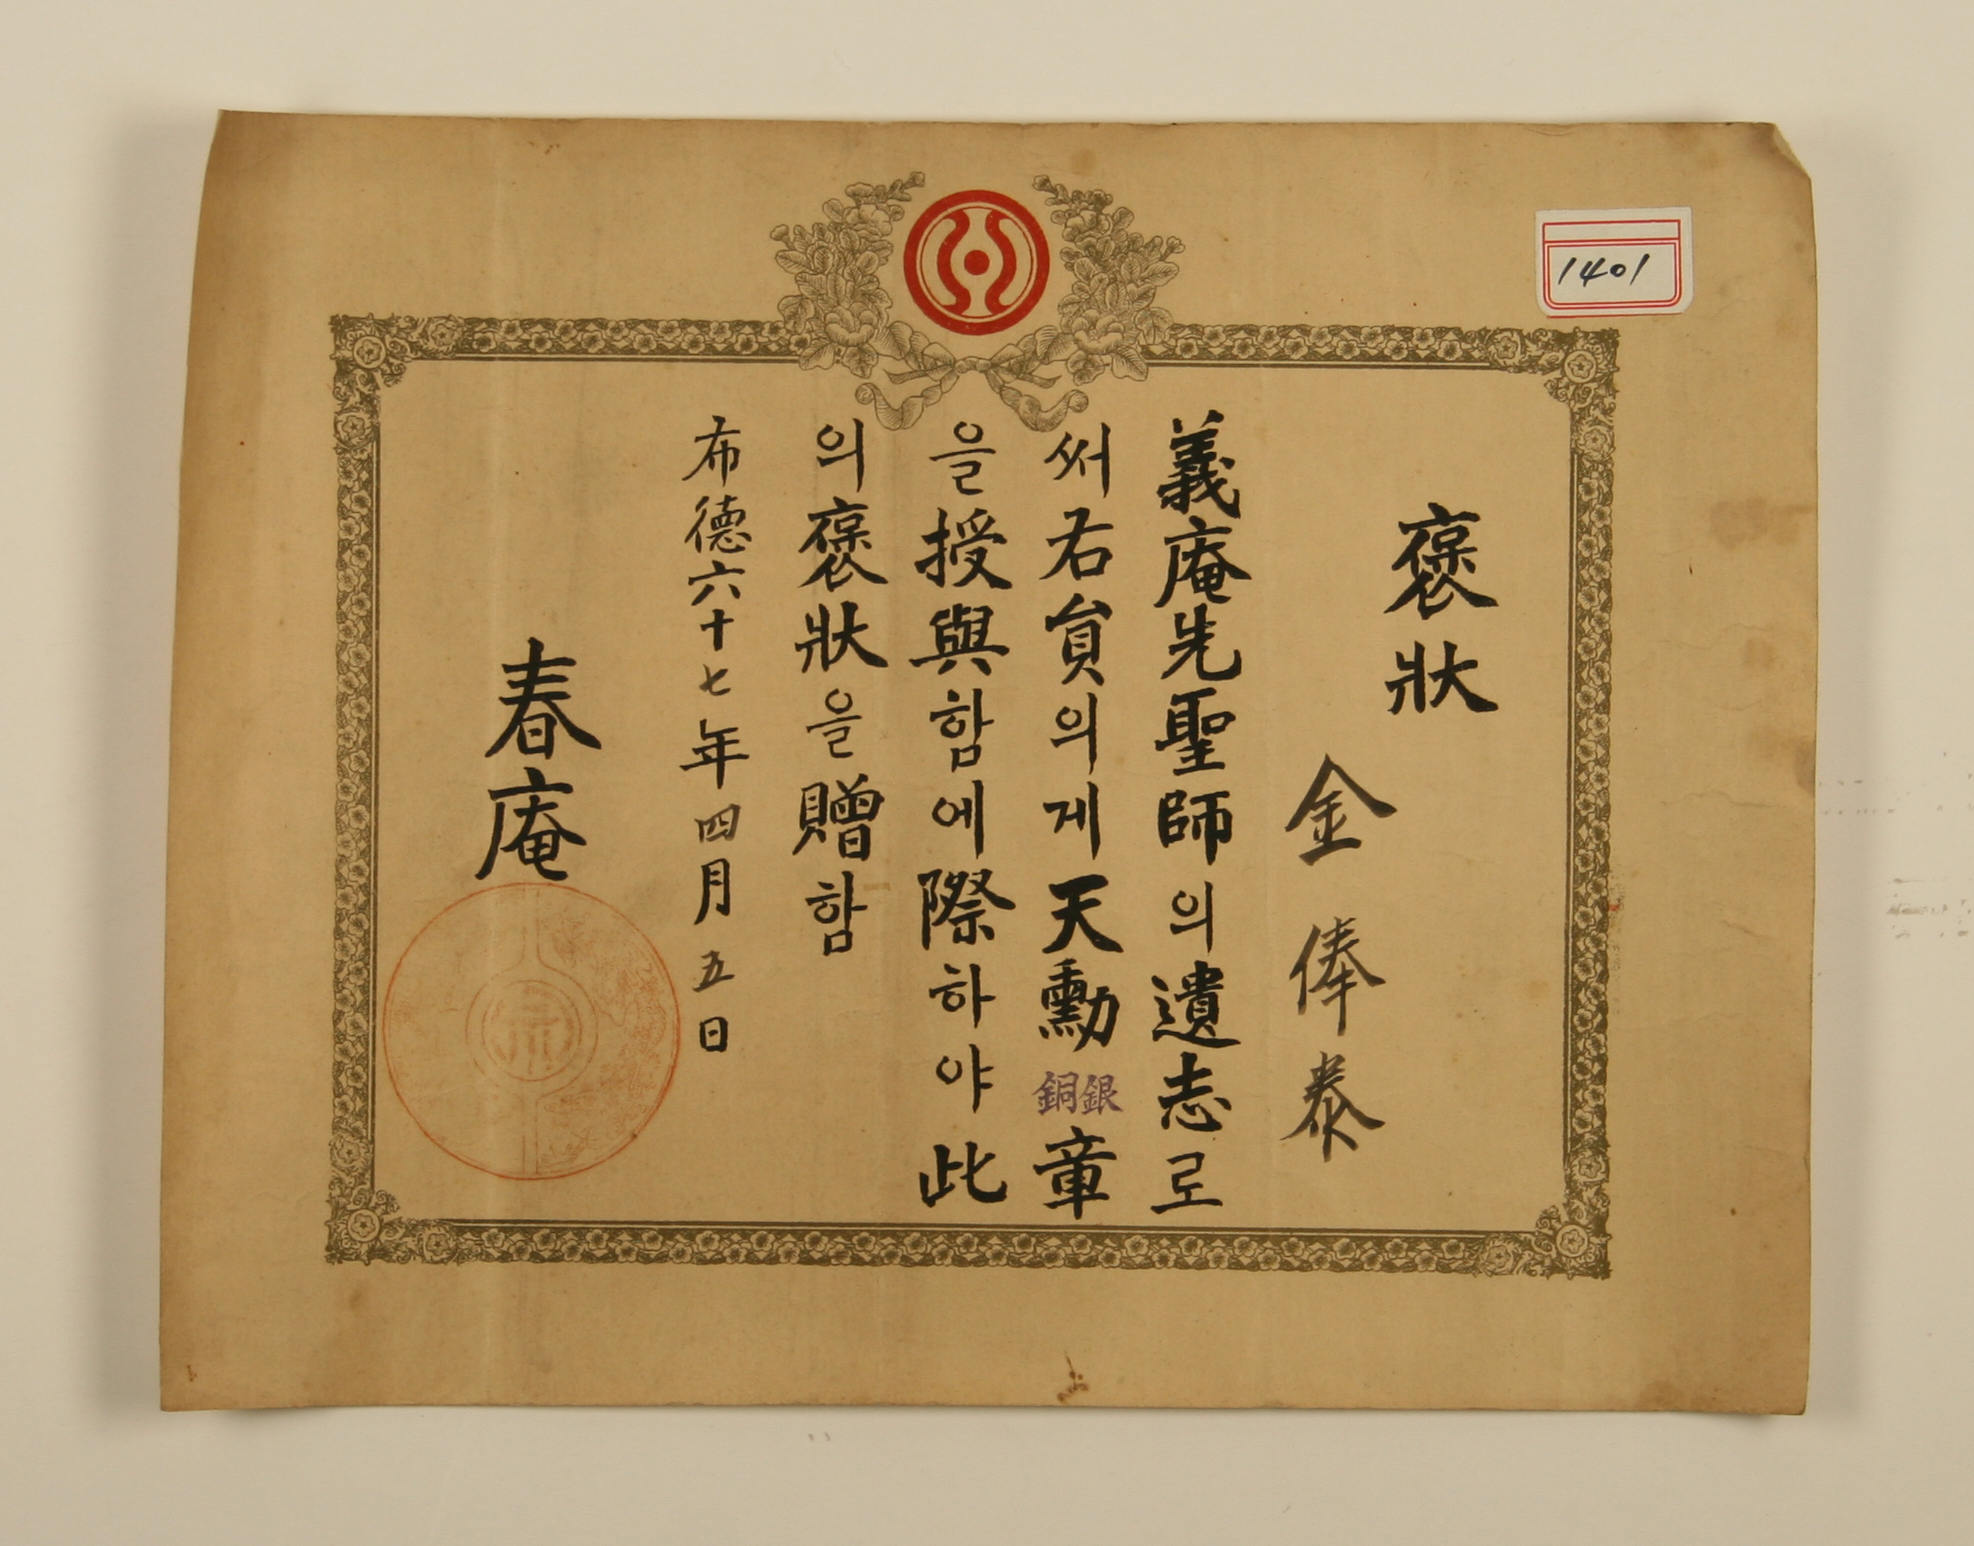 1401
褒狀
金俸泰
義庵先聖師의遺志로
써右員의게天勳銀銅章
을授與함에際하야此
의褒狀을贈함
布德六十七年四月五日
春庵